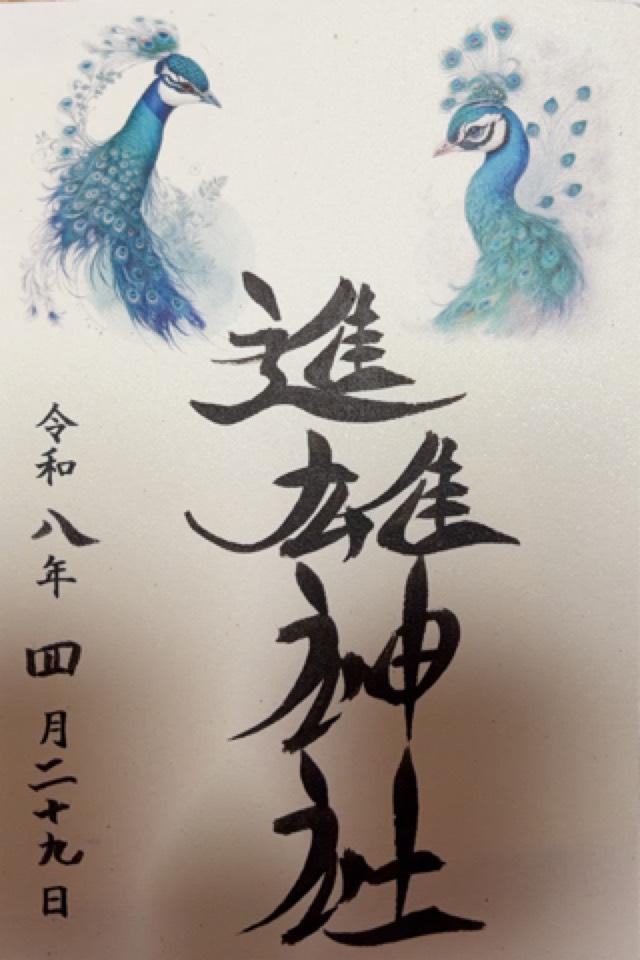 進雄神社
令和八年四月二十九日